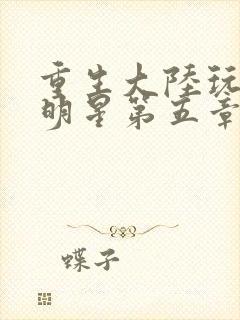 重生大陸玩
明星第五章
蝶子